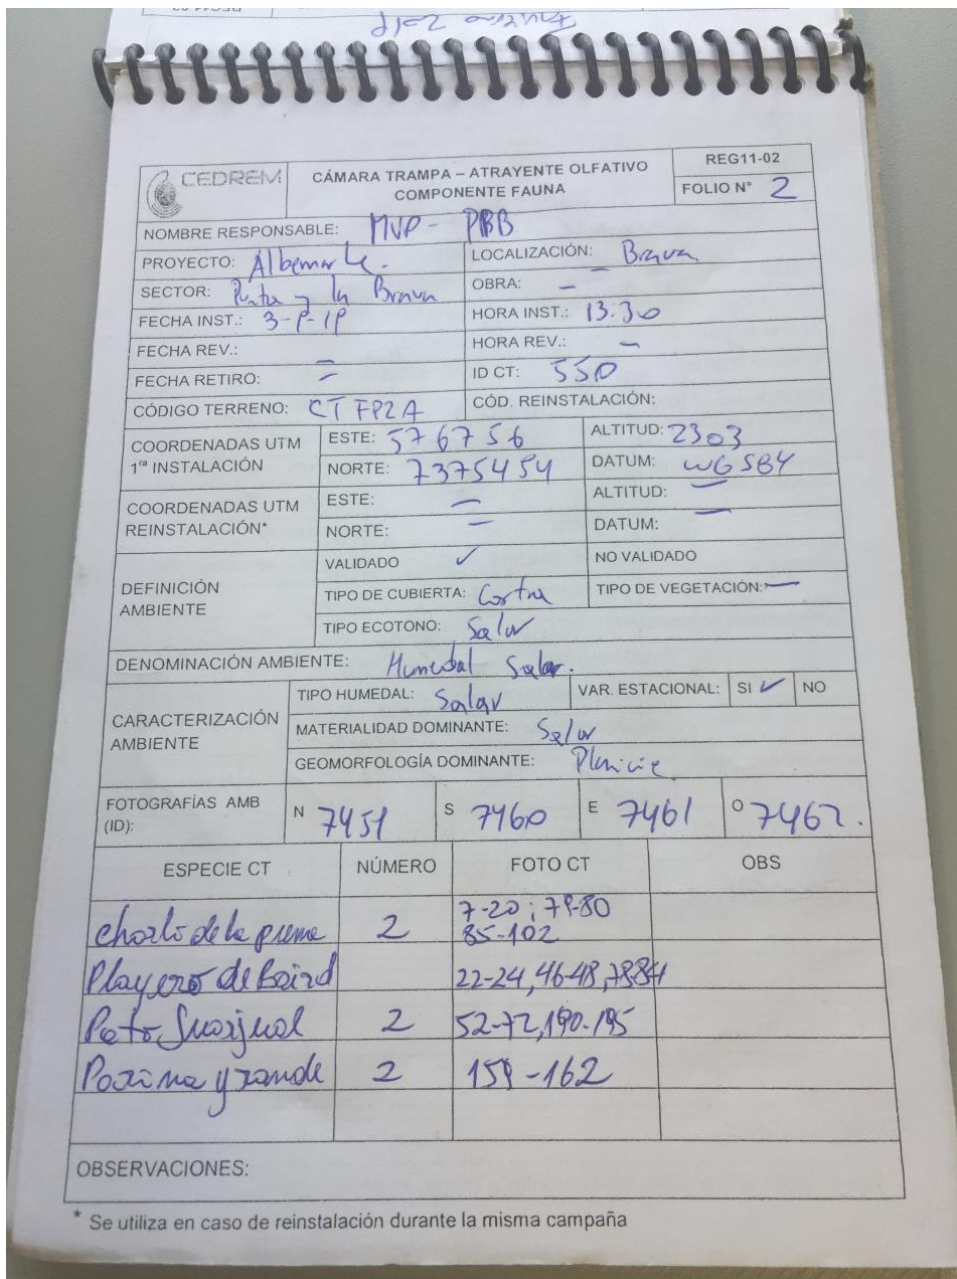 CEDREM
CÁMARA TRAMPA – ATRAYENTE OLFATIVO
COMPONENTE FAUNA
REG11-02
FOLIO N° 2
NOMBRE RESPONSABLE: MVP - PBB
PROYECTO: Albemarle.
LOCALIZACIÓN: Brava
SECTOR: Punta y la Brava
OBRA: –
FECHA INST.:
HORA INST.: 13:30
FECHA REV.: –
HORA REV.: –
FECHA RETIRO: –
ID CT: 550
CÓDIGO TERRENO: CT FP2A
CÓD. REINSTALACIÓN:
COORDENADAS UTM
1ra INSTALACIÓN
ESTE: 576756
ALTITUD: 2303
NORTE: 7375454
DATUM: WGS84
COORDENADAS UTM
REINSTALACIÓN*
ESTE: –
ALTITUD: –
NORTE: –
DATUM: –
DEFINICIÓN
AMBIENTE
VALIDADO ✓
NO VALIDADO
TIPO DE CUBIERTA: Costra
TIPO DE VEGETACIÓN: –
TIPO ECOTONO: Salar
DENOMINACIÓN AMBIENTE: Humedal Salar.
CARACTERIZACIÓN
AMBIENTE
TIPO HUMEDAL: Salar
VAR. ESTACIONAL: SI ✓ NO
MATERIALIDAD DOMINANTE: Salar
GEOMORFOLOGÍA DOMINANTE: Planicie
FOTOGRAFÍAS AMB
(ID):
N 7459 S 7460 E 7461 O 7462.
ESPECIE CT NÚMERO FOTO CT OBS
chorlo de la puna 2 7-20; 79-80
85-102
Playero de Baird 22-24, 46-48, 78-84
Pato Juarjual 2 52-72, 190-195
Parina grande 2 159-162
OBSERVACIONES:
* Se utiliza en caso de reinstalación durante la misma campaña